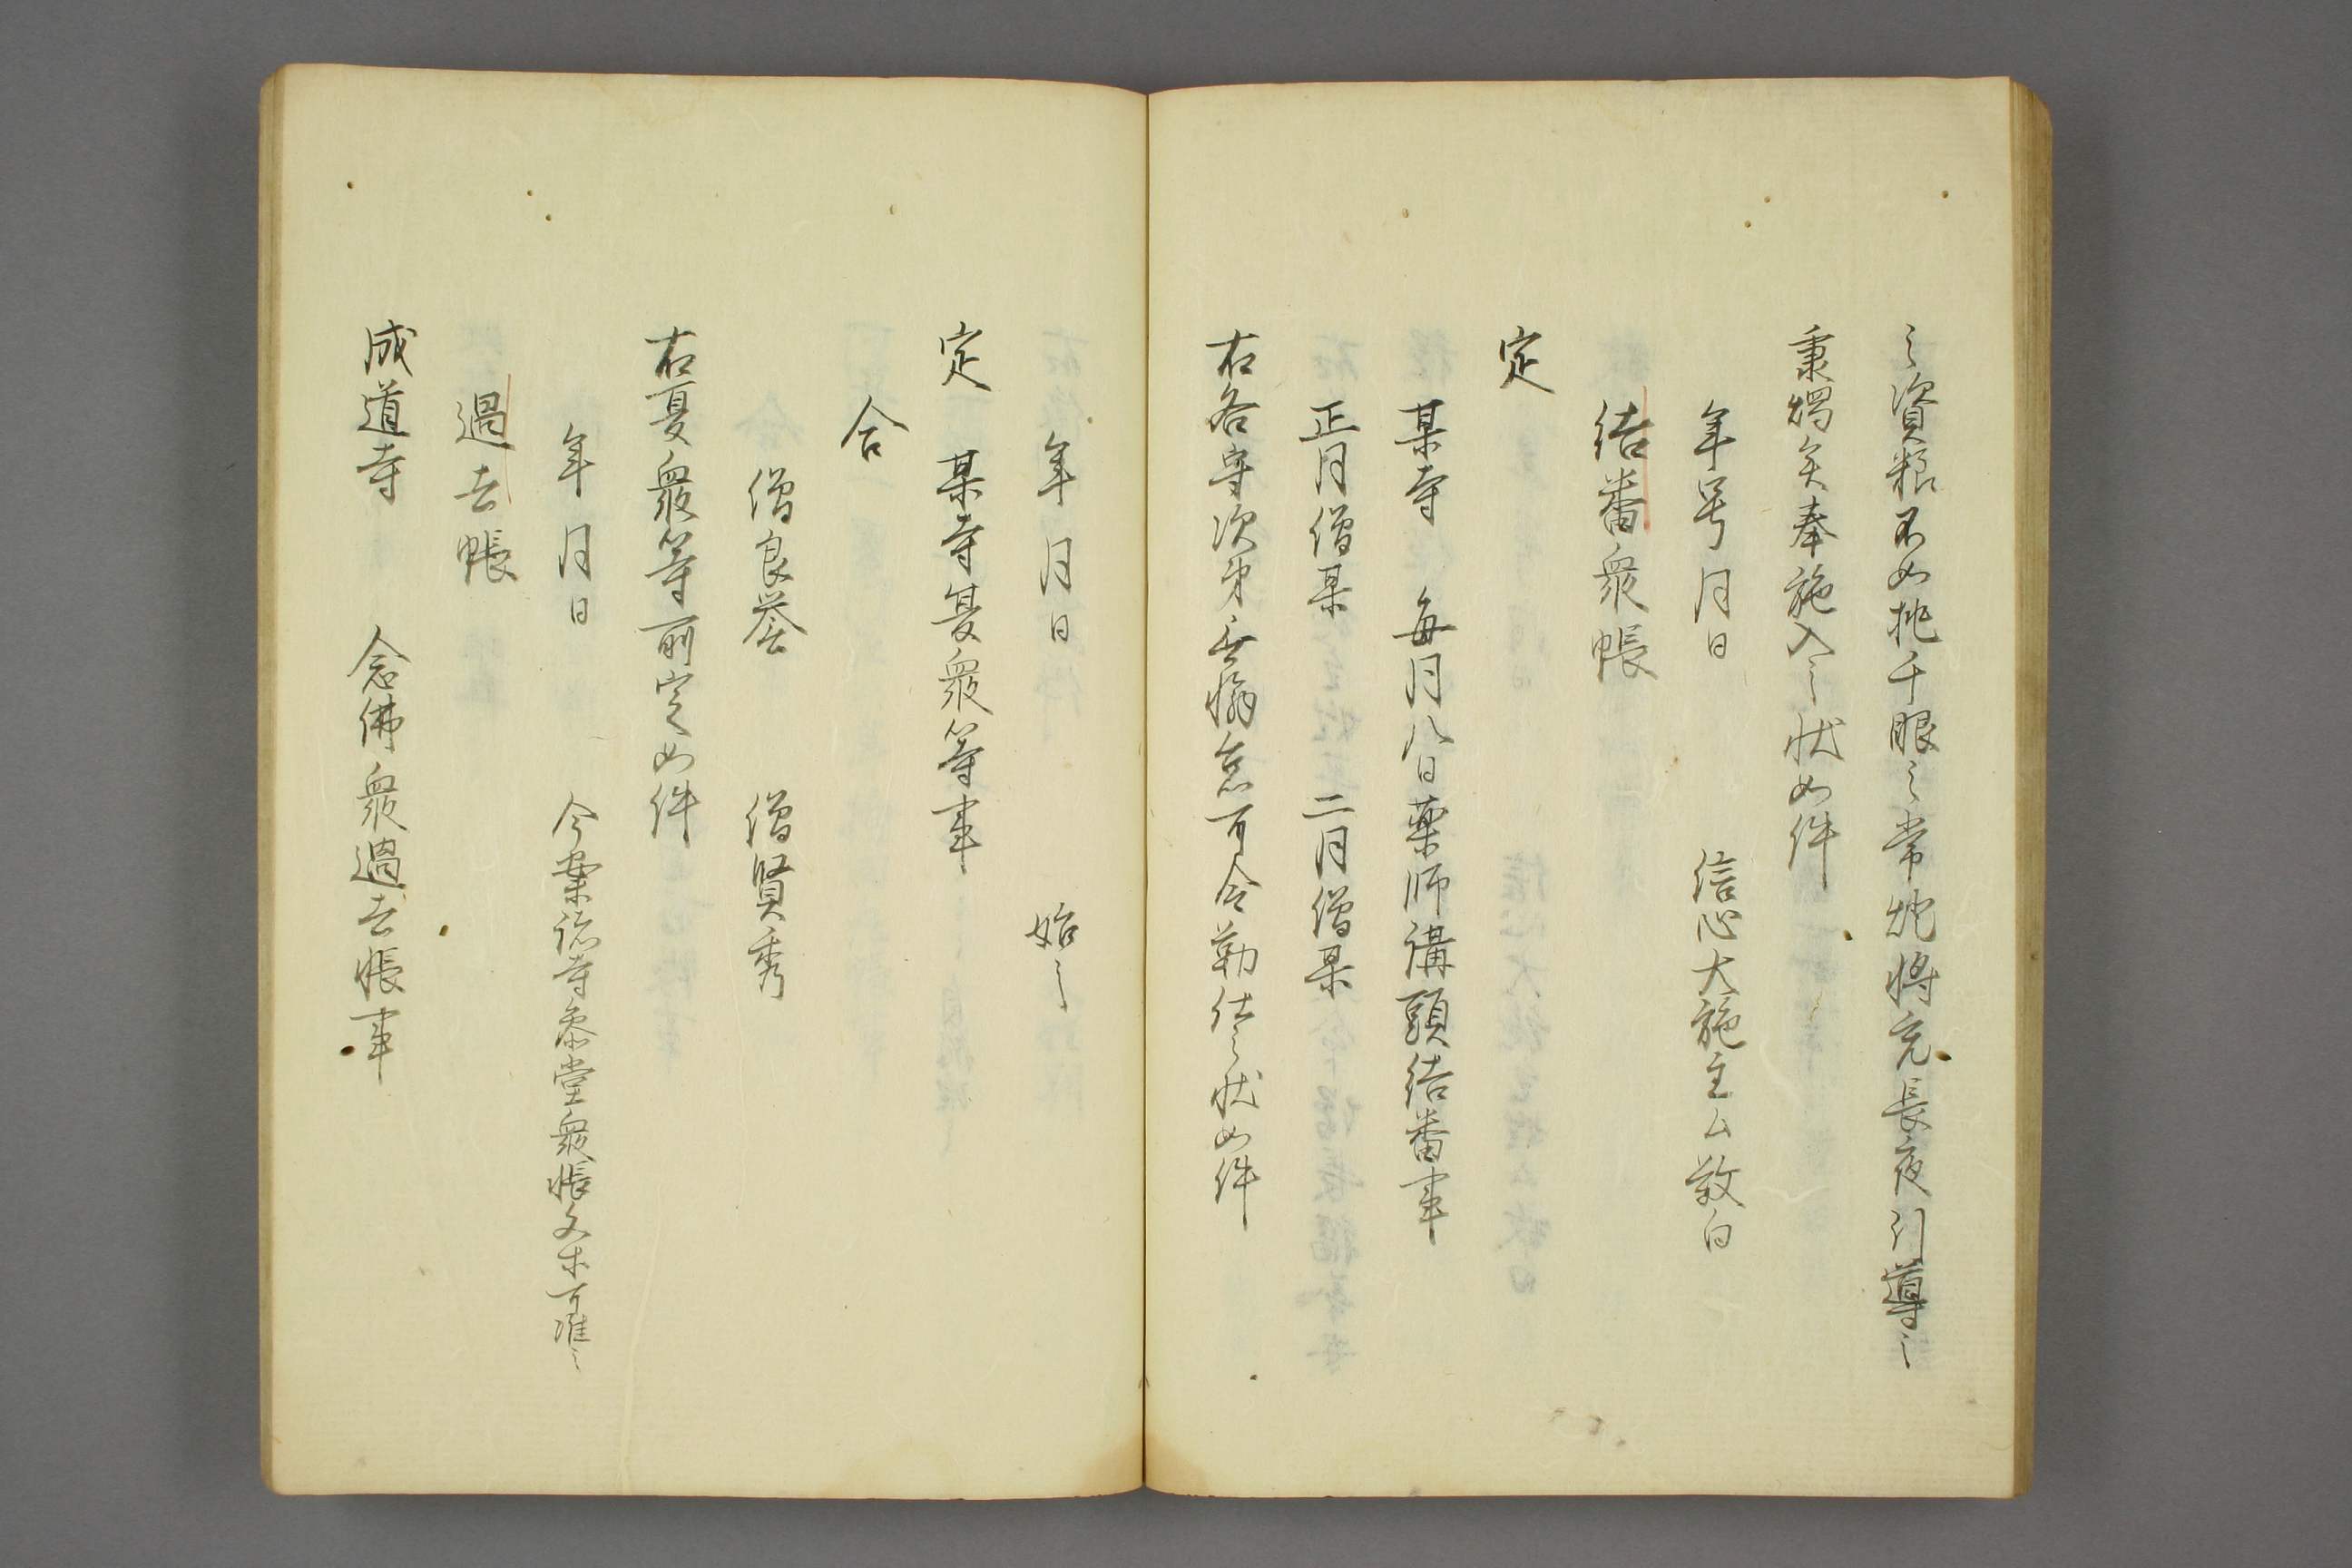 之資粮不如挑千眼之常灺将充長夜引導之
秉燭矣奉施入之状如件
年号月日 信心大施主ム敬白
結番衆帳
定
某寺 毎月八日薬師講頭結番事
正月僧某 二月僧某
右各守次第無懈怠可令勤仕之状如件
年月日 始之
定 某寺夏衆等事
合
僧良誉 僧賢秀
右夏衆等前定如件
年月日 今案諸寺参堂衆帳文等可准之
過去帳
成道寺 念佛衆過去帳事